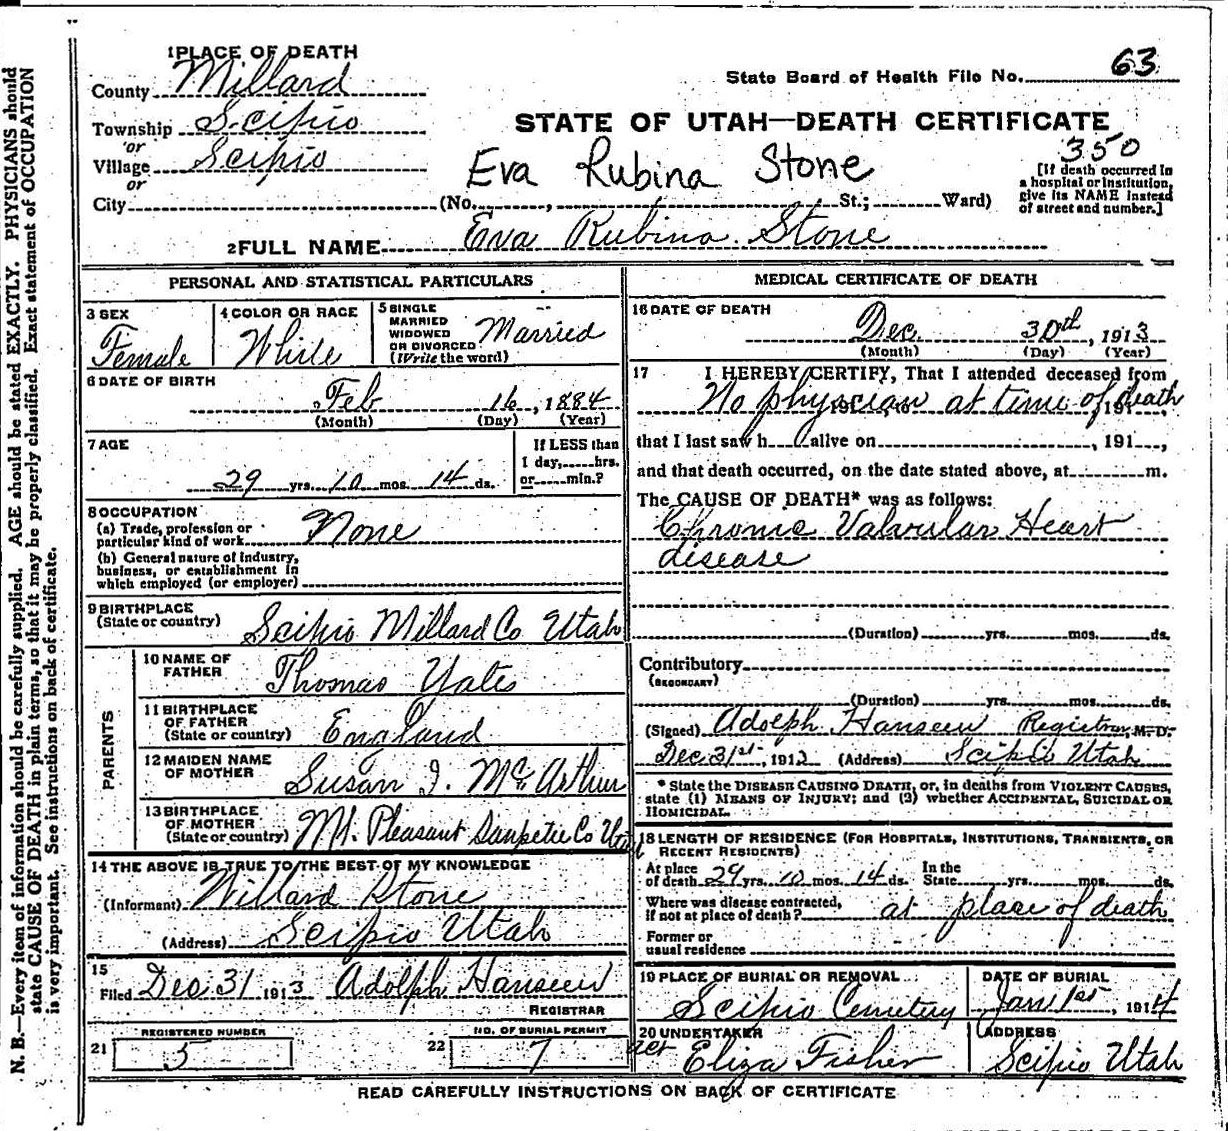 N. B.—Every item of information should be carefully supplied. AGE should be stated EXACTLY. PHYSICIANS should
state CAUSE OF DEATH in plain terms, so that it may be properly classified. Exact statement of OCCUPATION
is very important. See instructions on back of certificate.
1 PLACE OF DEATH
County Millard
Township Scipio
or
Village Scipio
or
City (No. , St.; Ward)
State Board of Health File No. 63
STATE OF UTAH—DEATH CERTIFICATE
350
Eva Rubina Stone
[If death occurred in
a hospital or institution,
give its NAME instead
of street and number.]
2 FULL NAME Eva Rubina Stone
PERSONAL AND STATISTICAL PARTICULARS
3 SEX
Female
4 COLOR OR RACE
White
5 SINGLE
MARRIED
WIDOWED
OR DIVORCED
(Write the word)
Married
6 DATE OF BIRTH
Feb 16, 1884
(Month) (Day) (Year)
7 AGE
29 yrs. 10 mos. 14 ds.
If LESS than
1 day, hrs.
or min.?
8 OCCUPATION
(a) Trade, profession or
particular kind of work None
(b) General nature of industry,
business, or establishment in
which employed (or employer)
9 BIRTHPLACE
(State or country) Scipio Millard Co Utah
PARENTS
10 NAME OF
FATHER Thomas Yates
11 BIRTHPLACE
OF FATHER
(State or country) England
12 MAIDEN NAME
OF MOTHER Susan I. McArthur
13 BIRTHPLACE
OF MOTHER
(State or country) Mt. Pleasant Sanpete Co Utah
14 THE ABOVE IS TRUE TO THE BEST OF MY KNOWLEDGE
(Informant) Willard Stone
(Address) Scipio Utah
15
Filed Dec 31 1913 Adolph Hanseen
REGISTRAR
REGISTERED NUMBER
21 5
NO. OF BURIAL PERMIT
22 7
MEDICAL CERTIFICATE OF DEATH
16 DATE OF DEATH
Dec. 30th, 1913
(Month) (Day) (Year)
17 I HEREBY CERTIFY, That I attended deceased from
No physician at time of death
that I last saw h alive on , 191 ,
and that death occurred, on the date stated above, at m.
The CAUSE OF DEATH* was as follows:
Chronic Valvular Heart
disease
(Duration) yrs. mos. ds.
Contributory
(SECONDARY)
(Duration) yrs. mos. ds.
(Signed) Adolph Hanseen Registrar, M. D.
Dec 31st, 1913 (Address) Scipio Utah
* State the DISEASE CAUSING DEATH, or, in deaths from VIOLENT CAUSES,
state (1) MEANS OF INJURY; and (2) whether ACCIDENTAL, SUICIDAL OR
HOMICIDAL.
18 LENGTH OF RESIDENCE (FOR HOSPITALS, INSTITUTIONS, TRANSIENTS, OR
RECENT RESIDENTS)
At place
of death 29 yrs. 10 mos. 14 ds.
In the
State yrs. mos. ds.
Where was disease contracted,
if not at place of death? at place of death
Former or
usual residence
19 PLACE OF BURIAL OR REMOVAL
Scipio Cemetery
DATE OF BURIAL
Jan 1st, 1914
20 UNDERTAKER
Eliza Fisher
ADDRESS
Scipio Utah
READ CAREFULLY INSTRUCTIONS ON BACK OF CERTIFICATE